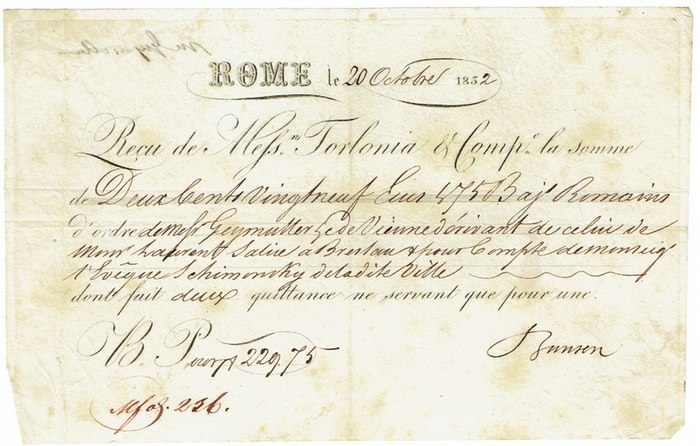 ROME le 20 Octobre 1832
Reçu de Mess.rs Torlonia & Comp.e la somme
de Deux Cents Vingtneuf Ecus & 75 Baj. Romains
d'ordre de Mess Geymuller & Ce de Vienne dérivant de celui de
Mons Laurent Salice à Breslau & pour Compte de Monseig
l'Evêque Schimonsky de la dite Ville
dont fait deux quittance ne servant que pour une.
B. P. 229,75
Bunsen
236.